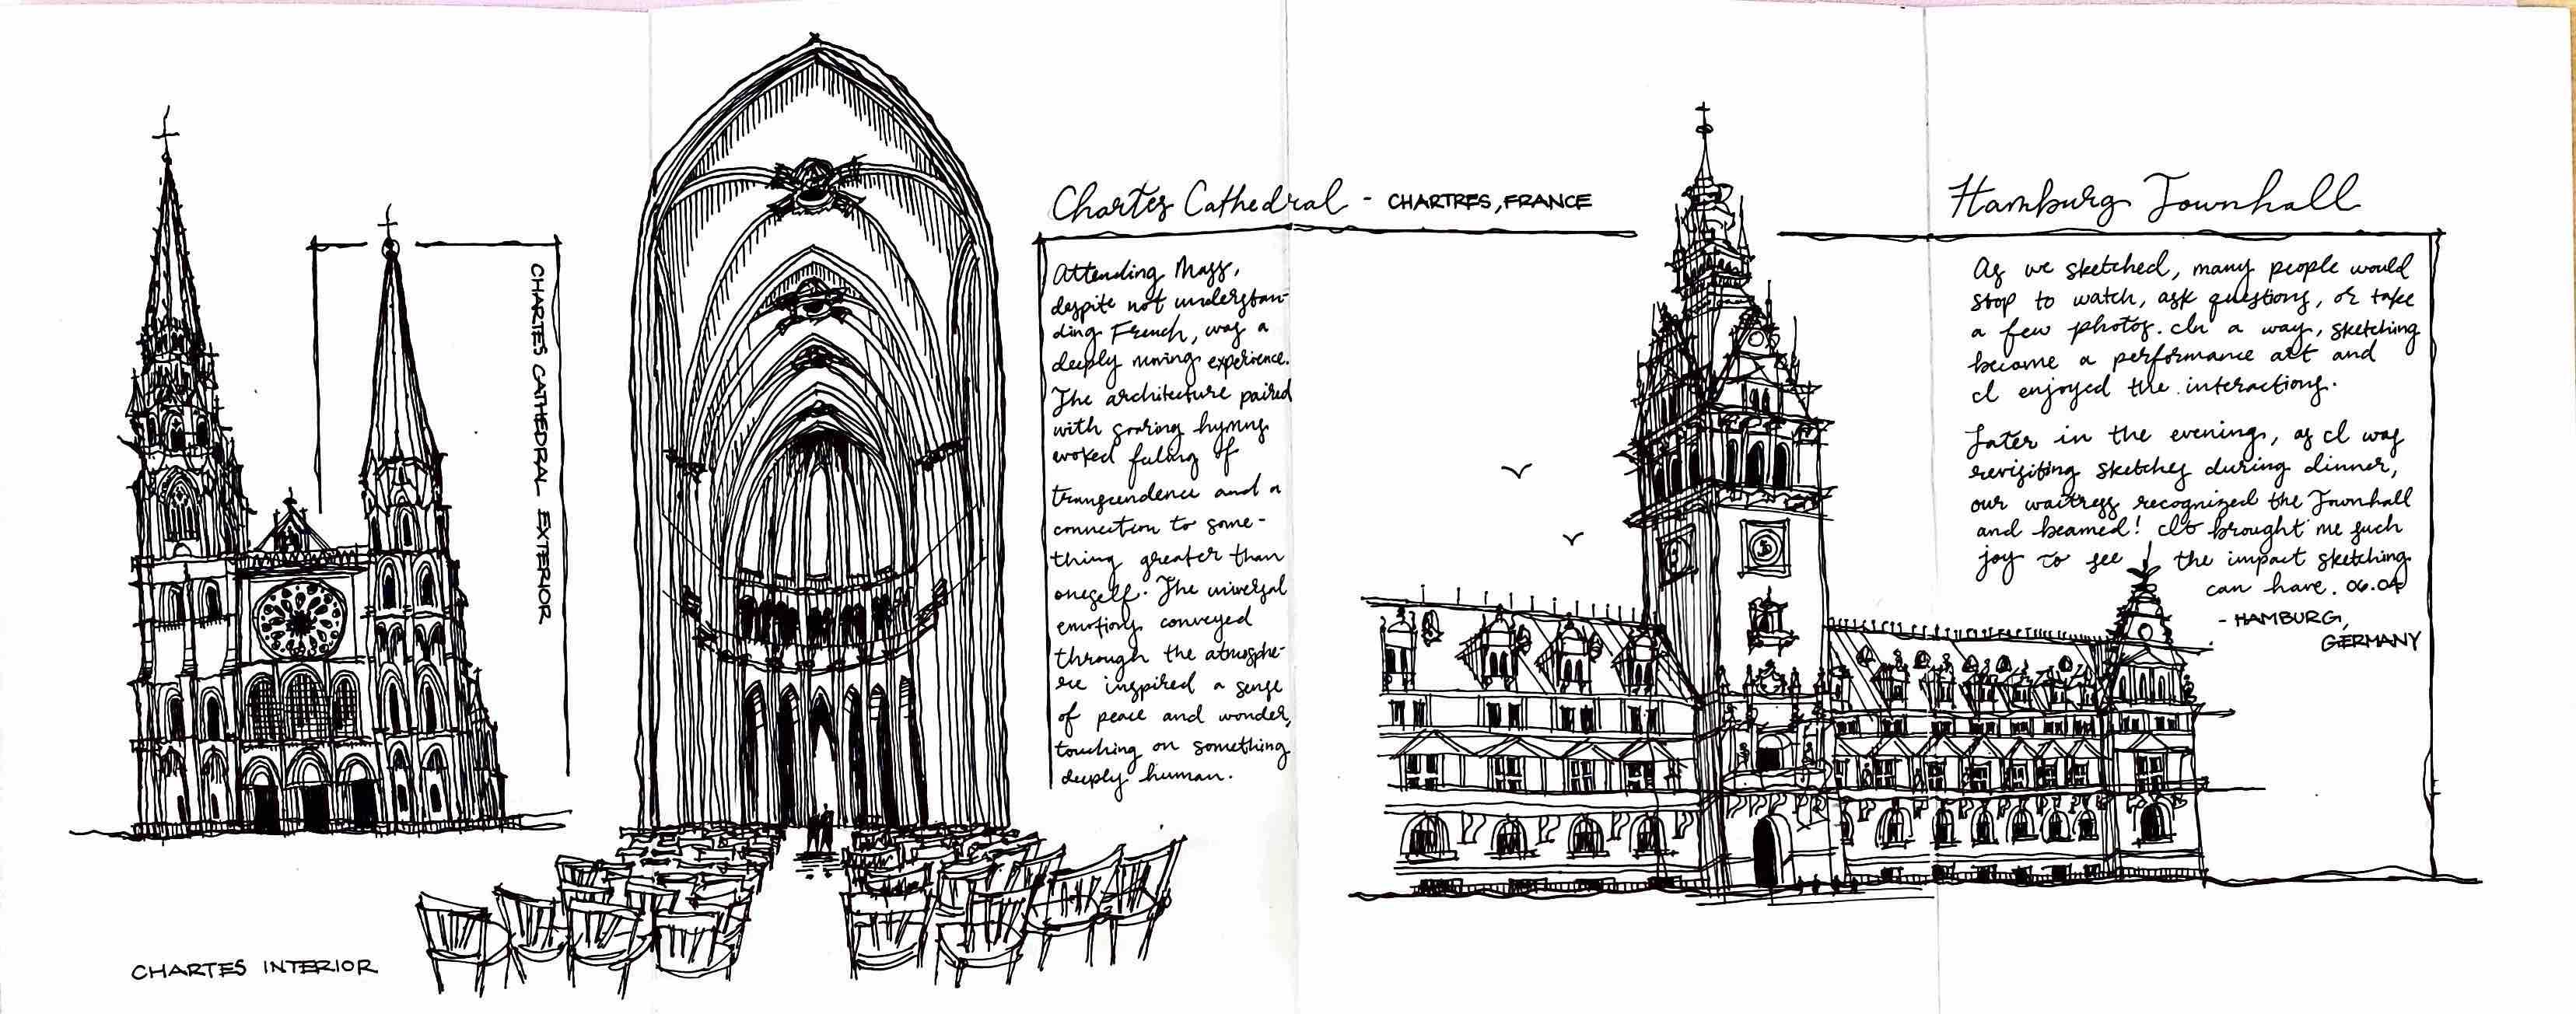 CHARTES CATHEDRAL EXTERIOR
CHARTES INTERIOR
Chartes Cathedral - CHARTRES, FRANCE
Attending Mass,
despite not understan-
ding French, was a
deeply moving experience.
The architecture paired
with soaring hymns
evoked feeling of
transcendence and a
connection to some-
thing greater than
oneself. The universal
emotions conveyed
through the atmosphe-
re inspired a sense
of peace and wonder,
touching on something
deeply human.
Hamburg Townhall
As we sketched, many people would
stop to watch, ask questions, or take
a few photos. In a way, sketching
became a performance art and
I enjoyed the interactions.
Later in the evening, as I was
revisiting sketches during dinner,
our waitress recognized the Townhall
and beamed! It brought me such
joy to see the impact sketching
can have. 06.04
- HAMBURG,
GERMANY